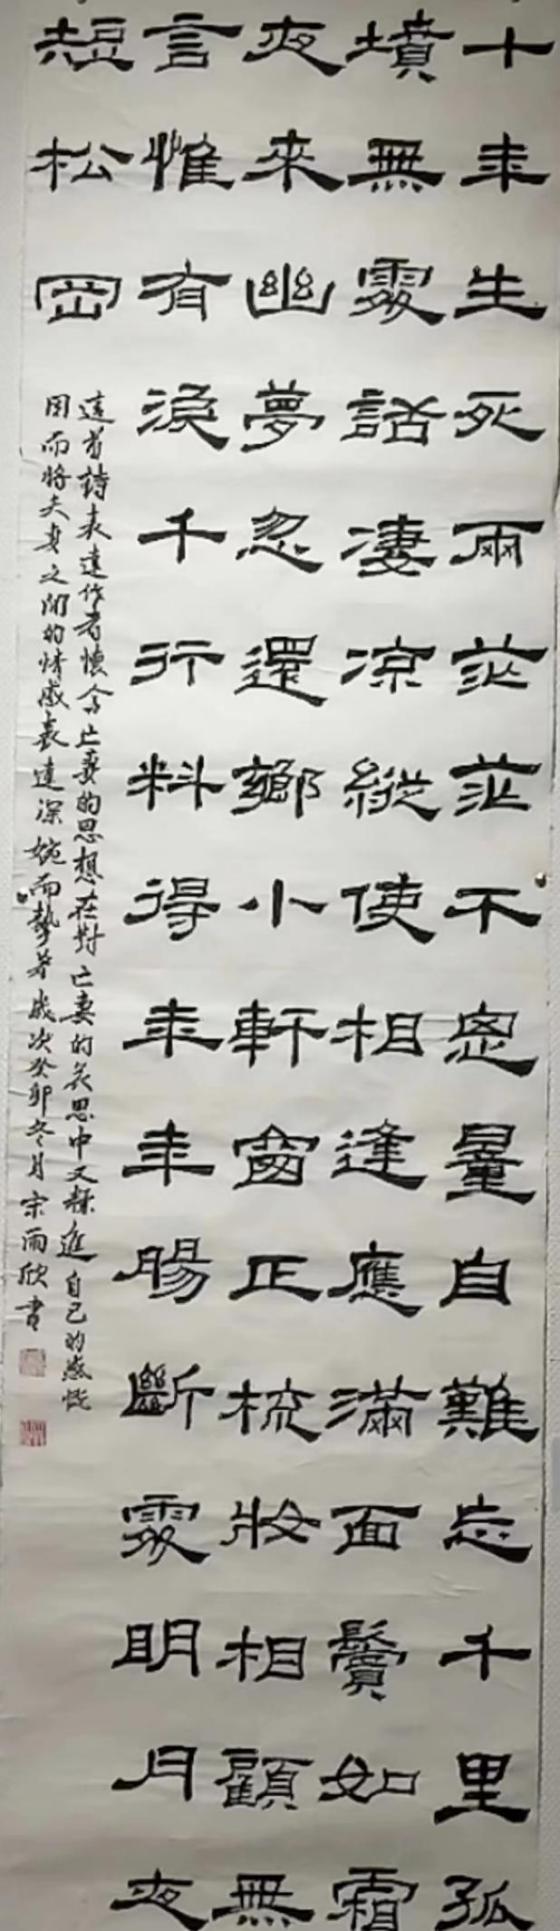 十年生死兩茫茫不思量自難忘千里孤
墳無處話凄凉縱使相逢應滿面鬢如霜
夜來幽夢忽還鄉小軒窗正梳妝相顧無
言惟有淚千行料得年年腸斷處明月夜
短松岡
這首詩表達作者懷念亡妻的思想在對亡妻的哀思中又糅進自己的感慨
因而將夫妻之間的情感表達深婉而摯著歲次癸卯冬月宗雨欣書